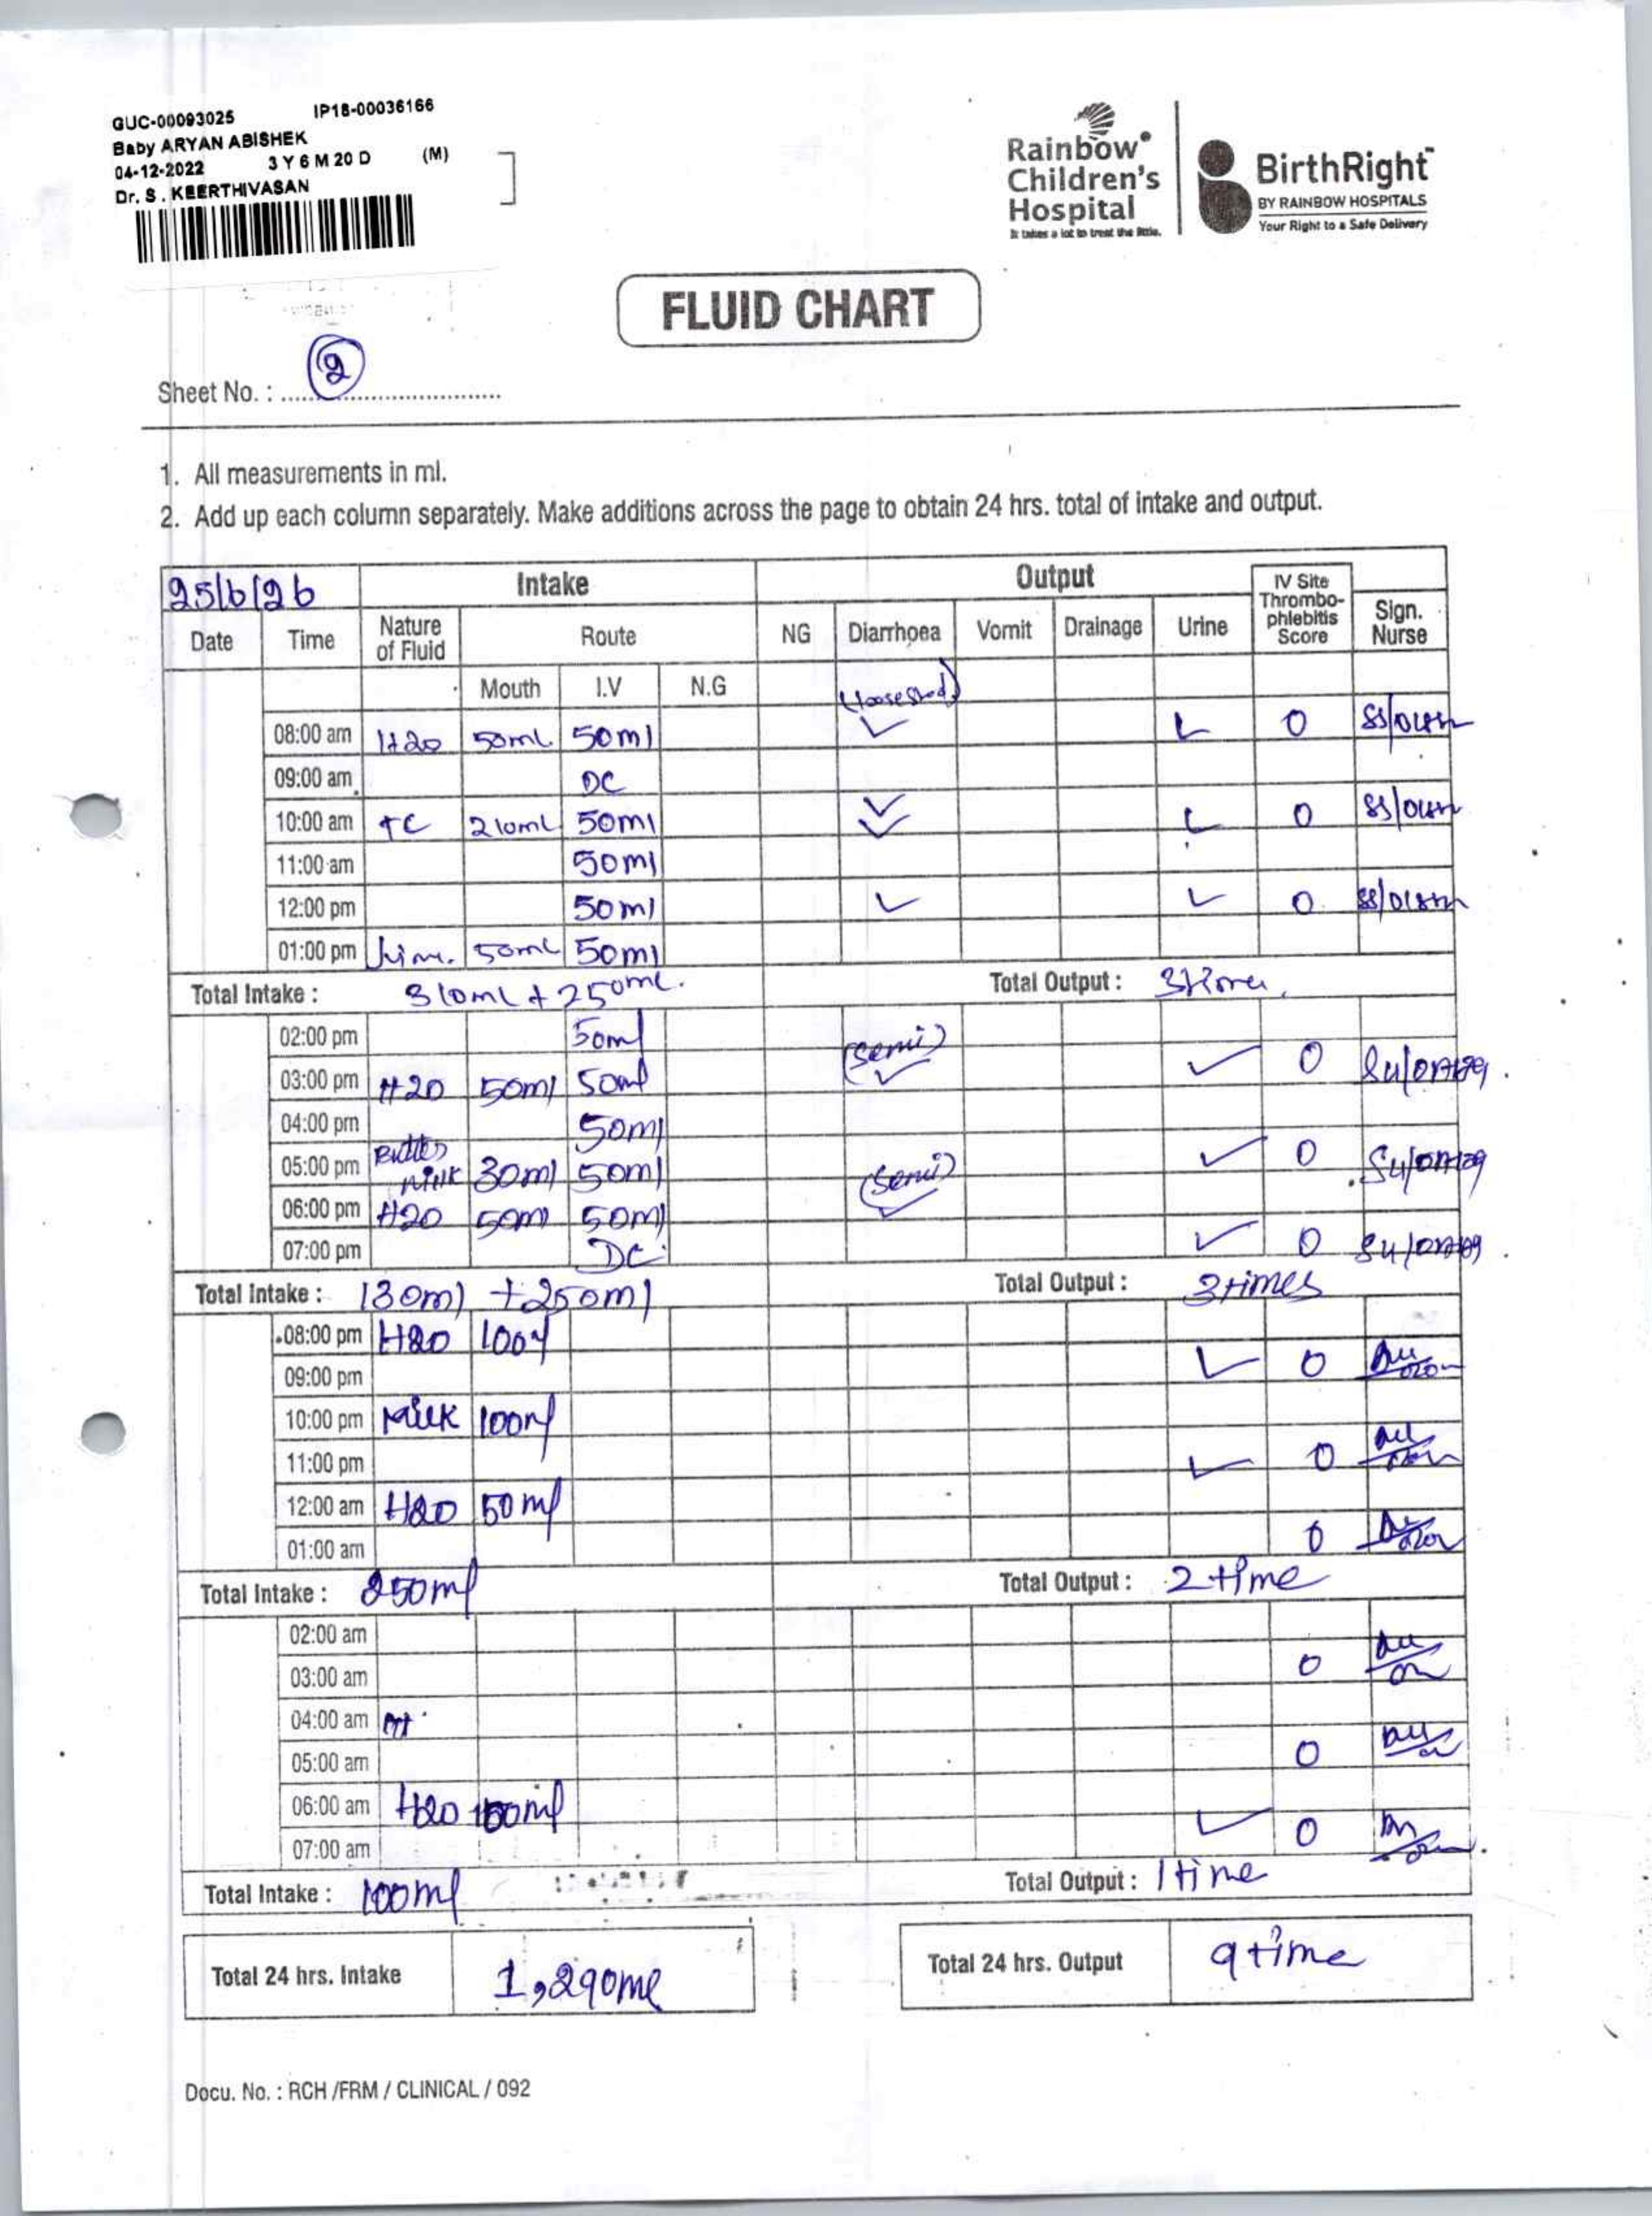 GUC-00093025 IP18-00036166
Baby ARYAN ABISHEK
04-12-2022 3 Y 6 M 20 D (M)
Dr. S . KEERTHIVASAN
Rainbow Children's Hospital
It takes a lot to treat the little.
BirthRight
BY RAINBOW HOSPITALS
Your Right to a Safe Delivery
FLUID CHART
Sheet No. : 2
1. All measurements in ml.
2. Add up each column separately. Make additions across the page to obtain 24 hrs. total of intake and output.
25/6/26 Intake Output IV Site Thrombo-phlebitis Score Sign. Nurse
Date Time Nature of Fluid Route NG Diarrhoea Vomit Drainage Urine
Mouth I.V N.G
08:00 am H20 50ml 50ml ✓ ✓ 0
09:00 am DC
10:00 am TC 210ml 50ml ✓✓ ✓ 0
11:00 am 50ml
12:00 pm 50ml ✓ ✓ 0
01:00 pm 50ml 50ml
Total Intake : 310ml + 250ml. Total Output :
02:00 pm 50ml (semi)
03:00 pm H20 50ml 50ml ✓ ✓ 0
04:00 pm 50ml
05:00 pm Butter milk 30ml 50ml (semi) ✓ 0
06:00 pm H20 50ml 50ml ✓
07:00 pm DC ✓ 0
Total Intake : 130ml + 250ml Total Output : 3 times
08:00 pm H20 100ml
09:00 pm ✓ 0
10:00 pm Milk 100ml
11:00 pm ✓ 0
12:00 am H20 50ml
01:00 am 0
Total Intake : 250ml Total Output : 2 time
02:00 am
03:00 am 0
04:00 am
05:00 am 0
06:00 am H20 100ml
07:00 am ✓ 0
Total Intake : 100ml Total Output : 1 time
Total 24 hrs. Intake 1,290ml Total 24 hrs. Output 9 time
Docu. No. : RCH /FRM / CLINICAL / 092